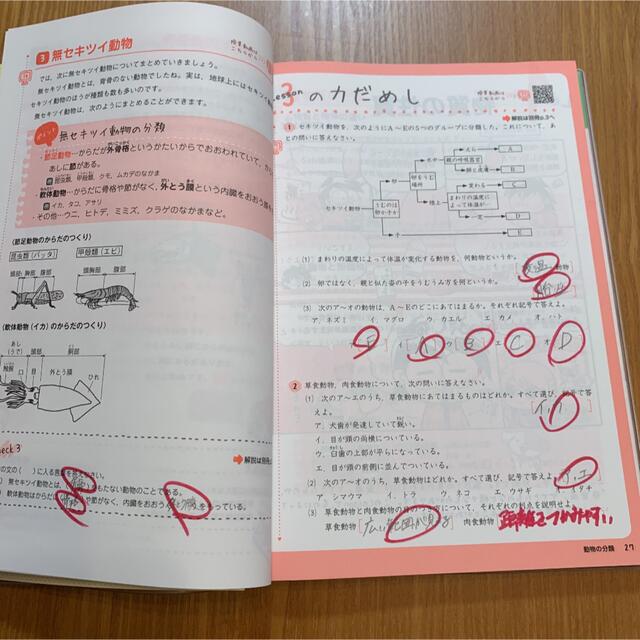 3 無セキツイ動物
授業動画は
こちらから
では、次に無セキツイ動物についてまとめていきましょう。
無セキツイ動物とは、背骨のない動物でしたね。実は、地球上にはセキツイ
無セキツイ動物のほうが種類も数も多いのです。
無セキツイ動物は、次のようにまとめることができます。
ポイント 無セキツイ動物の分類
・節足動物…からだが外骨格というかたいからでおおわれていて、から
あしに節がある。
例 昆虫類、甲殻類、クモ、ムカデのなかま
・軟体動物…からだに骨格や節がなく、外とう膜という内臓をおおう膜を
例 イカ、タコ、アサリ
・その他…ウニ、ヒトデ、ミミズ、クラゲのなかまなど。
〈節足動物のからだのつくり〉
昆虫類(バッタ) 甲殻類(エビ)
頭部 胸部 腹部 頭胸部 腹部
〈軟体動物(イカ)のからだのつくり〉
あし
(うで) 頭部 胴部
触腕 口 目 外とう膜 ひれ
check 3
解説は別冊
の文の( )に入る言葉を答えなさい。
無セキツイ動物とは、 をもたない動物のことである。
軟体動物はからだに 骨格 や節がなく、内臓をおおう をもっている。
Lesson 3 の力だめし
授業動画は
こちらから
解説は別冊p.3へ
1 セキツイ動物を、次のようにA〜Eの5つのグループに分類した。これについて、あ
との問いに答えなさい。
セキツイ動物
うむのは
卵か子か
卵
卵をうむ
場所
水中
親の呼吸器官
えら A
肺と皮膚 B
陸上
まわりの温度に
よって体温が…
変わる C
一定 D
子 E
(1) まわりの温度によって体温が変化する動物を、何動物というか。
[変温 動物
(2) 卵ではなく、親と似た姿の子をうむうみ方を何というか。
胎生
(3) 次のア〜オの動物は、A〜Eのどこにあてはまるか。それぞれ記号で答えよ。
ア、ネズミ イ、マグロ ウ、カエル エ、カメ オ、ハト
ア E イ A ウ B エ C オ D
2 草食動物、肉食動物について、次の問いに答えなさい。
(1) 次のア〜エのうち、草食動物にあてはまるものはどれか。すべて選び、記号で答
えよ。
[イ,ウ]
ア、犬歯が発達していて鋭い。
イ、目が顔の両横についている。
ウ、臼歯の上部が平らになっている。
エ、目が顔の前側に並んでついている。
(2) 次のア〜オのうち、草食動物はどれか。すべて選び、記号で答えよ。[ア,エ]
ア、シマウマ イ、トラ ウ、ネコ エ、ウサギ オ、イタチ
(3) 草食動物と肉食動物の目のつき方について、それぞれの利点を説明せよ。
草食動物 [広い範囲が見える] 肉食動物 距離感をつかみやすい
動物の分類 27